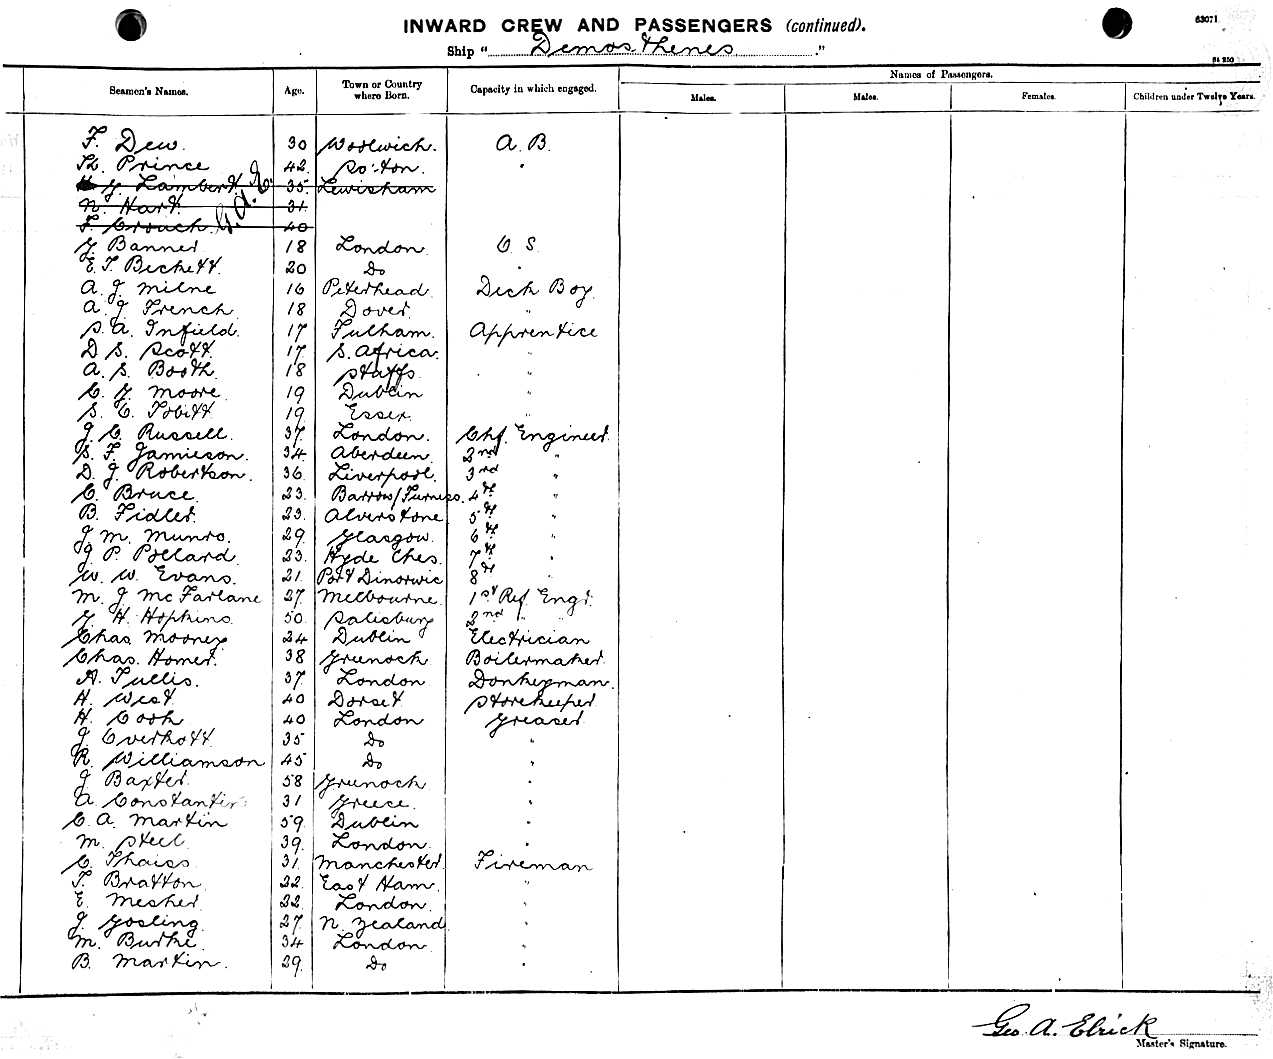 INWARD CREW AND PASSENGERS (continued).
63071
Ship "Demosthenes."
Seamen's Names. Age. Town or Country where Born. Capacity in which engaged. Names of Passengers.
Males. Males. Females. Children under Twelve Years.
F. Dew. 30 Woolwich. A.B.
Prince 42 So'ton. "
Lambert. 35 Lewisham
N. Hart. 31
F. Crouch. 40
G.A.E.
G. Banner 18 London. O S.
E. T. Beckett. 20 Do "
A. J. Milne 16 Peterhead Deck Boy.
A. J. French 18 Dover. "
S. A. Infield. 17 Fulham. Apprentice
D. S. Scott. 17 S. Africa. "
A. S. Booth. 18 Staffs. "
C. G. Moore 19 Dublin "
S. C. Tobitt 19 Essex. "
J. C. Russell. 37 London. Chf. Engineer.
S. F. Jamieson. 34 Aberdeen. 2nd "
D. J. Robertson. 36 Liverpool. 3rd "
C. Bruce. 23 Barrow/Furness. 4th "
B. Fidler. 23 Alverstone 5th "
J. M. Munro. 29 Glasgow. 6th "
J. P. Pollard. 23 Hyde Ches. 7th "
W. W. Evans. 21 Port Dinorwic 8th "
M. J McFarlane 27 Melbourne. 1st Ref. Engr.
G. H. Hopkins. 50 Salisbury 2nd " "
Chas. Mooney 24 Dublin Electrician
Chas. Homer. 38 Greenock Boilermaker.
A. Tullis. 37 London Donkeyman.
H. West 40 Dorset Storekeeper
H. Cook 40 London Greaser
J. Overhott. 35 Do "
R. Williamson 45 Do "
J. Baxter. 58 Greenock "
A. Constantin 31 Greece. "
C. A. Martin 59 Dublin "
M. Steel 39 London. "
C. Thaiss 31 Manchester. Fireman
T. Bratton. 22 East Ham. "
E. Mesher 22 London. "
J. Gosling. 27 N. Zealand. "
M. Burke. 34 London. "
B. Martin. 29 Do "
Geo. A. Elrick
Master's Signature.